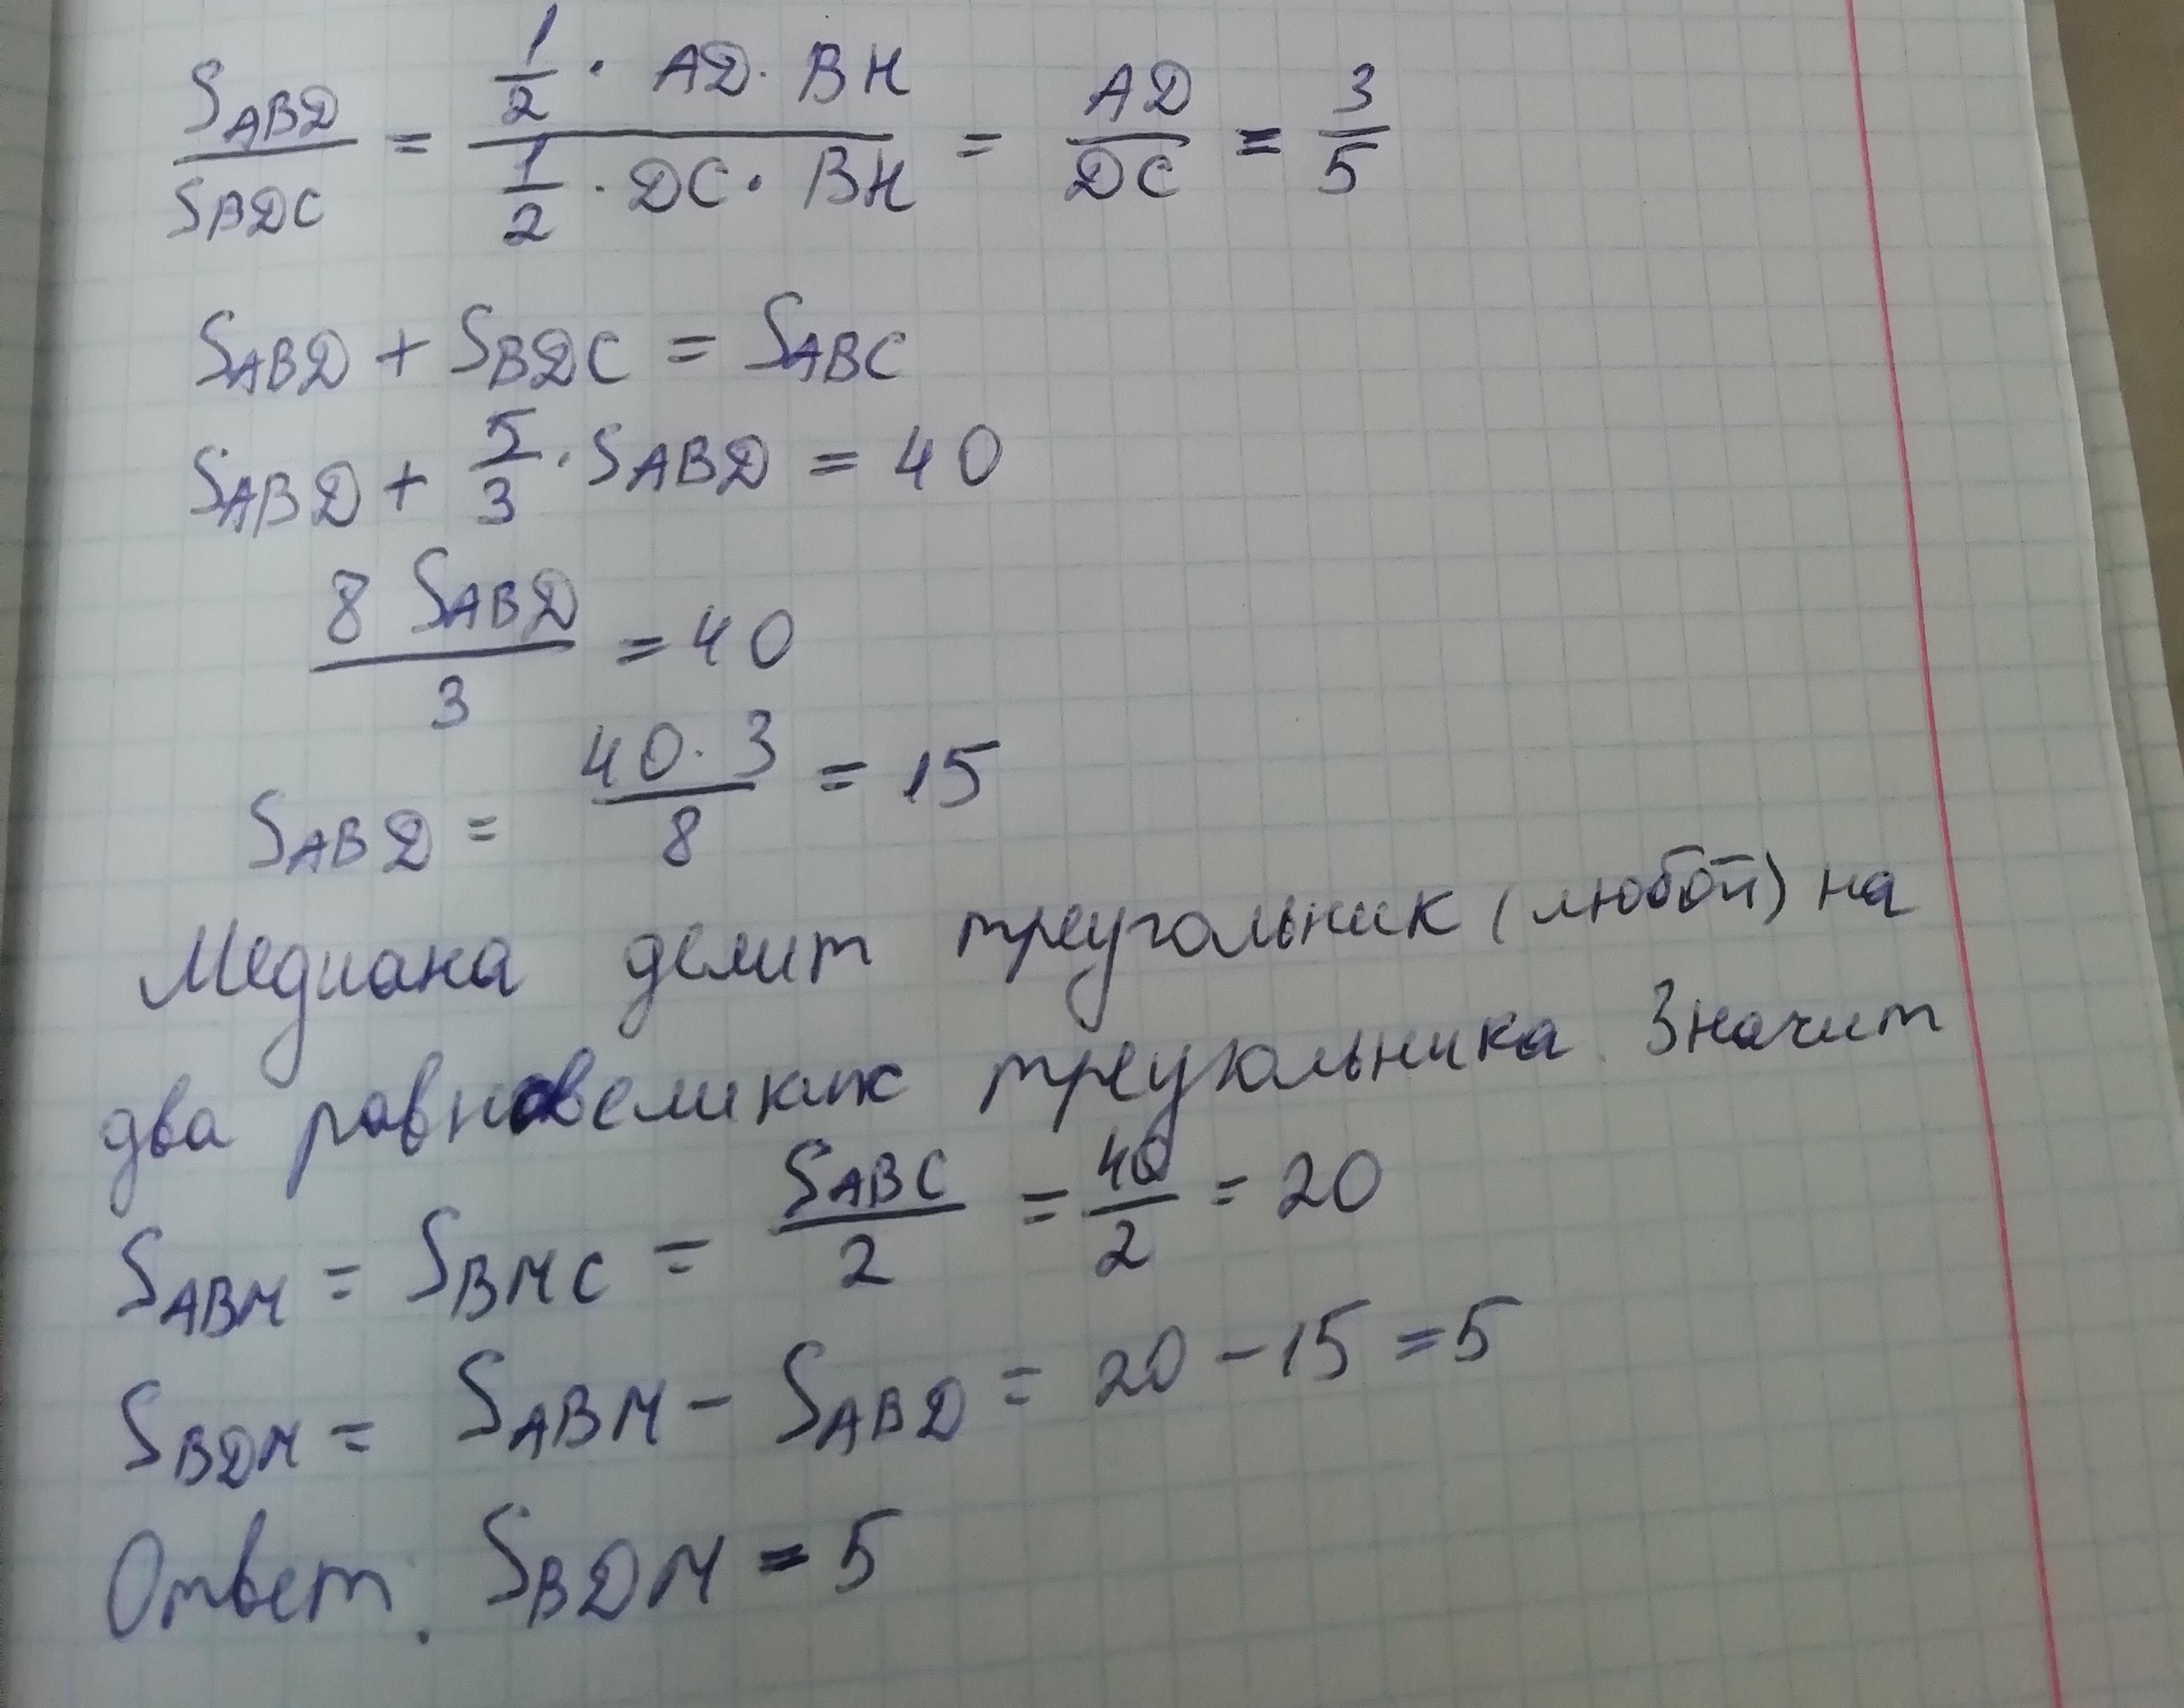 S_ABD / S_BDC = (1/2 · AD · BH) / (1/2 · DC · BH) = AD / DC = 3/5
S_ABD + S_BDC = S_ABC
S_ABD + 5/3 · S_ABD = 40
8 S_ABD / 3 = 40
S_ABD = 40 · 3 / 8 = 15
Медиана делит треугольник (любой) на
два равновеликих треугольника. Значит
S_ABM = S_BMC = S_ABC / 2 = 40 / 2 = 20
S_BDM = S_ABM - S_ABD = 20 - 15 = 5
Ответ: S_BDM = 5